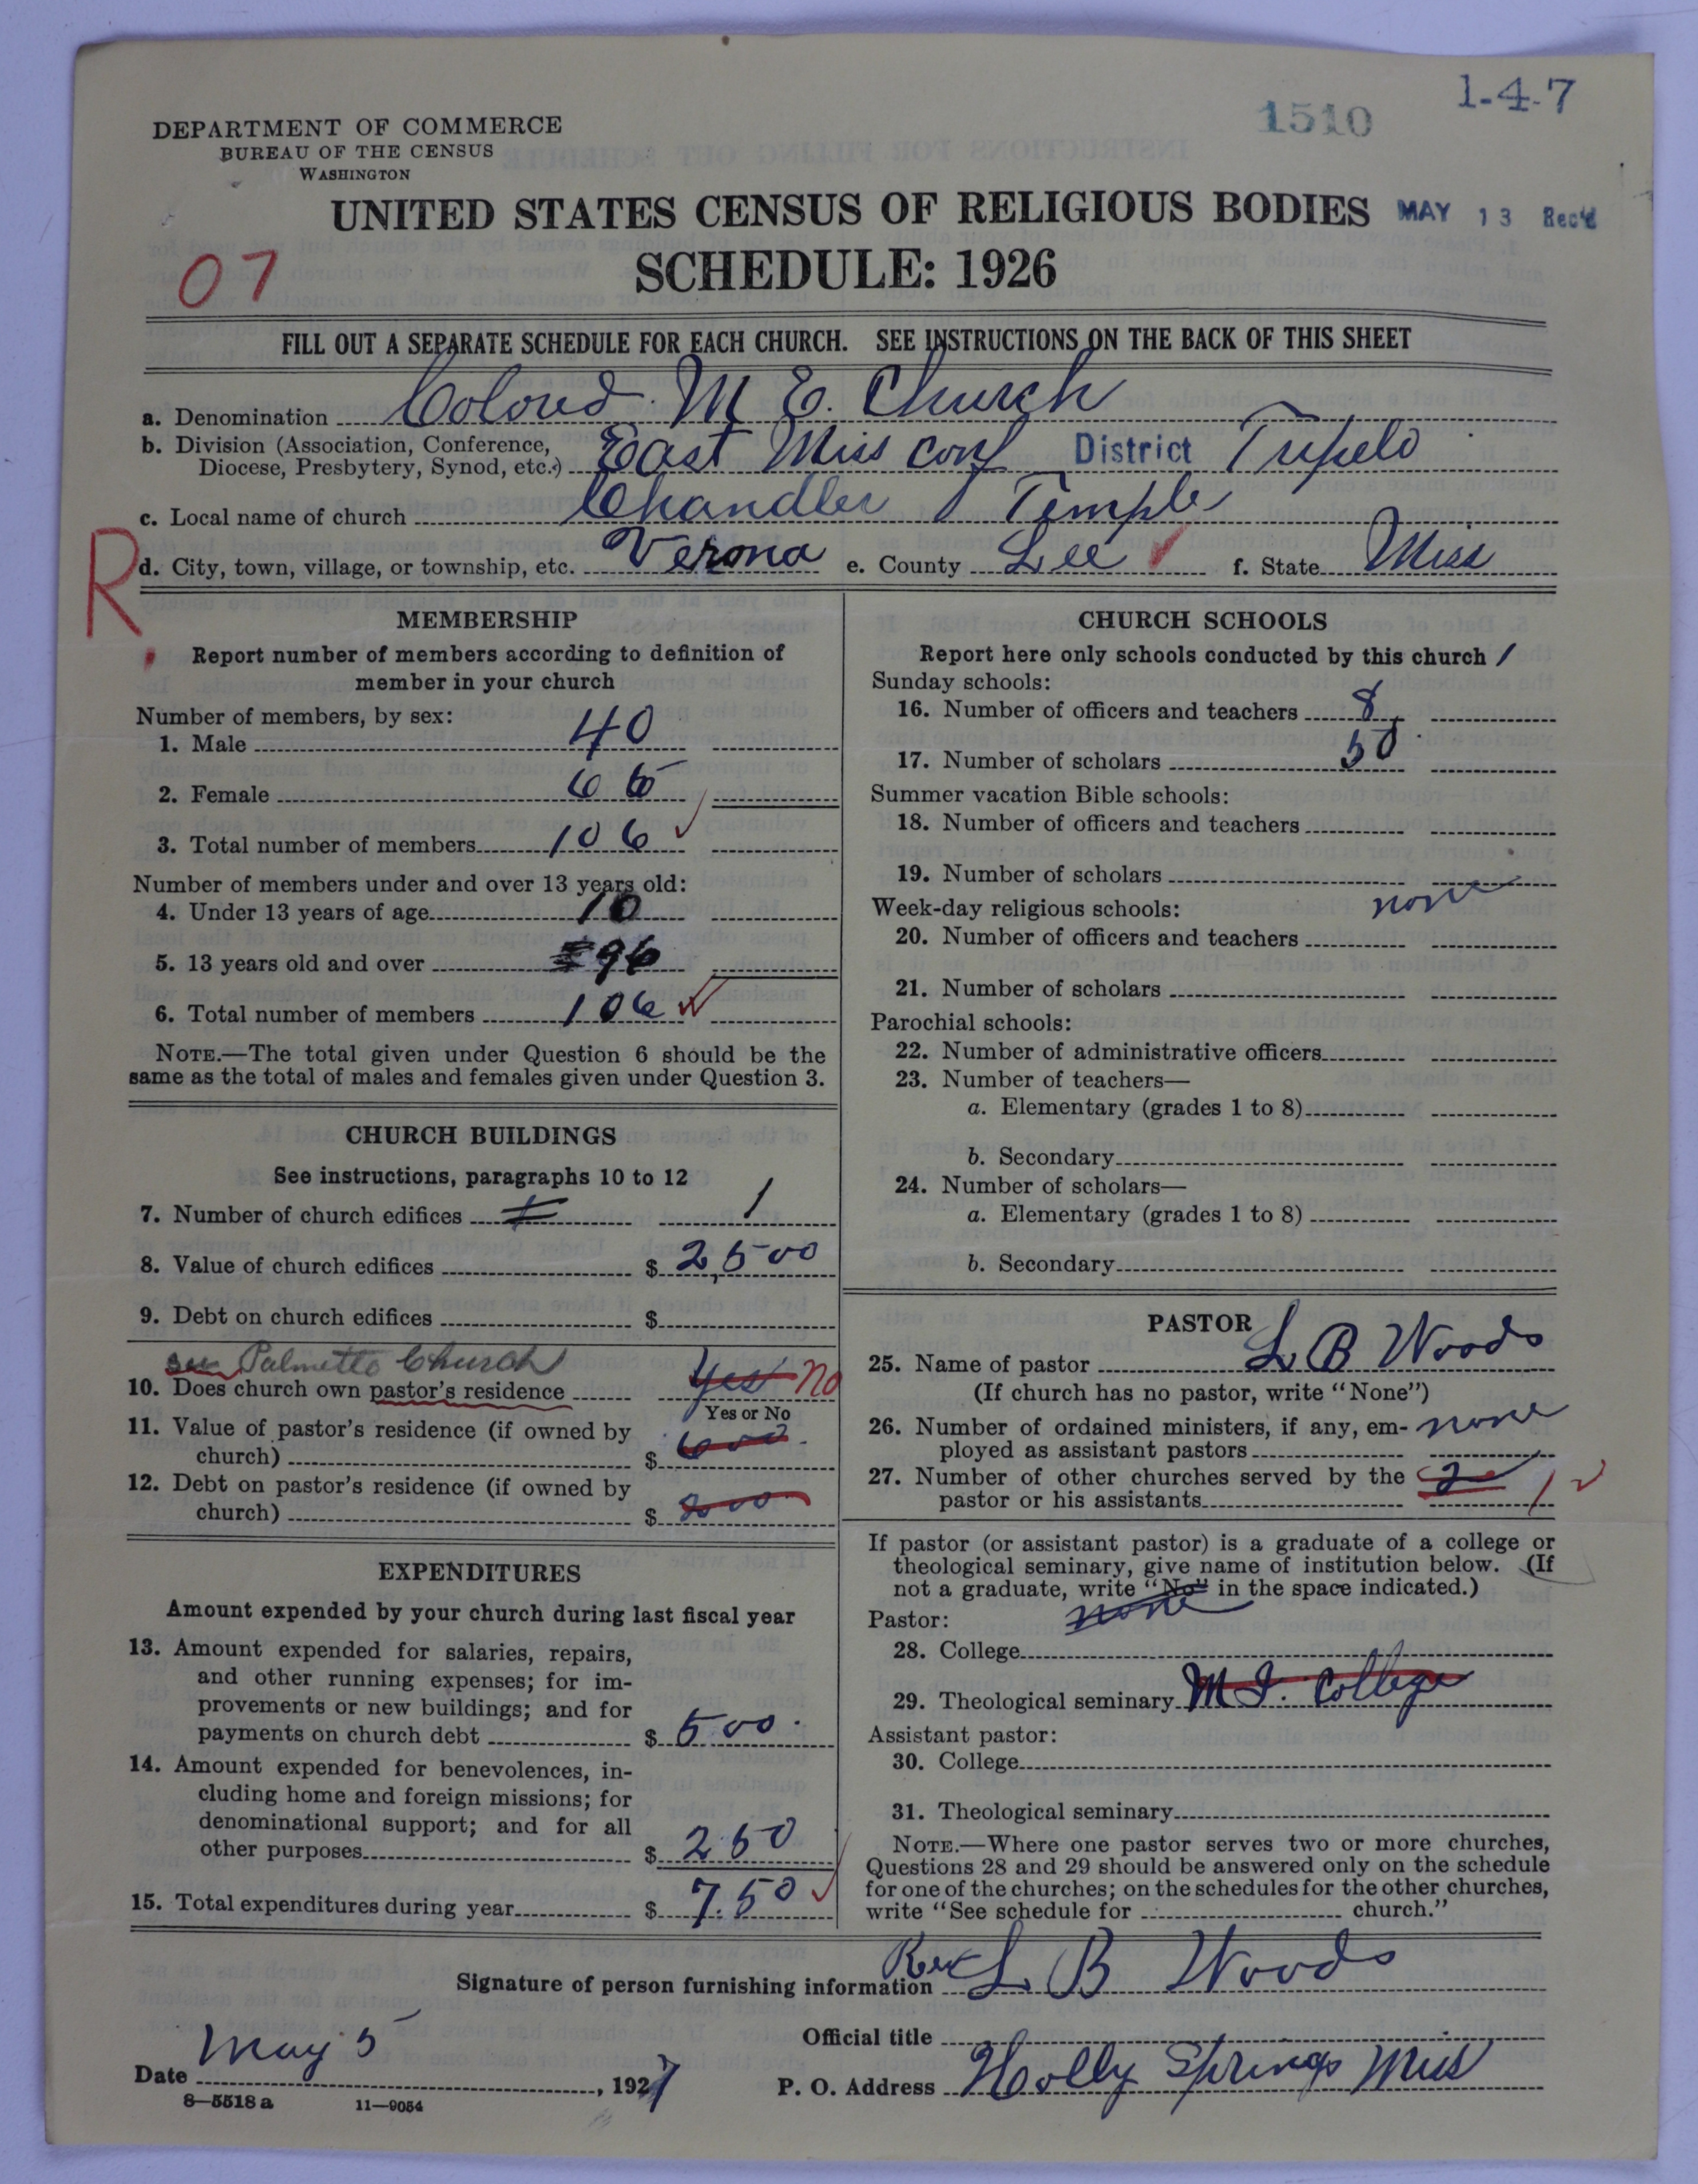 1-4-7
1510
DEPARTMENT OF COMMERCE
BUREAU OF THE CENSUS
WASHINGTON
UNITED STATES CENSUS OF RELIGIOUS BODIES MAY 13 Rec'd
SCHEDULE: 1926
07
FILL OUT A SEPARATE SCHEDULE FOR EACH CHURCH. SEE INSTRUCTIONS ON THE BACK OF THIS SHEET
a. Denomination Colored M E. Church
b. Division (Association, Conference, Diocese, Presbytery, Synod, etc.) East Miss conf District Tupelo
c. Local name of church Chandler Temple
R
d. City, town, village, or township, etc. Verona e. County Lee f. State Miss
MEMBERSHIP
Report number of members according to definition of
member in your church
Number of members, by sex:
1. Male 40
2. Female 66
3. Total number of members 106
Number of members under and over 13 years old:
4. Under 13 years of age 10
5. 13 years old and over 96
6. Total number of members 106
NOTE.—The total given under Question 6 should be the
same as the total of males and females given under Question 3.
CHURCH BUILDINGS
See instructions, paragraphs 10 to 12
7. Number of church edifices 1 1
8. Value of church edifices $ 2,500
9. Debt on church edifices $
see Palmetto Church
10. Does church own pastor's residence Yes No
Yes or No
11. Value of pastor's residence (if owned by
church) $ 600
12. Debt on pastor's residence (if owned by
church) $ 200
EXPENDITURES
Amount expended by your church during last fiscal year
13. Amount expended for salaries, repairs,
and other running expenses; for im-
provements or new buildings; and for
payments on church debt $ 500.
14. Amount expended for benevolences, in-
cluding home and foreign missions; for
denominational support; and for all
other purposes $ 250
15. Total expenditures during year $ 7.50
CHURCH SCHOOLS
Report here only schools conducted by this church 1
Sunday schools:
16. Number of officers and teachers 8
17. Number of scholars 50
Summer vacation Bible schools:
18. Number of officers and teachers
19. Number of scholars
Week-day religious schools: none
20. Number of officers and teachers
21. Number of scholars
Parochial schools:
22. Number of administrative officers
23. Number of teachers—
a. Elementary (grades 1 to 8)
b. Secondary
24. Number of scholars—
a. Elementary (grades 1 to 8)
b. Secondary
PASTOR
25. Name of pastor L B Woods
(If church has no pastor, write "None")
26. Number of ordained ministers, if any, em-
ployed as assistant pastors none
27. Number of other churches served by the
pastor or his assistants 2 1
If pastor (or assistant pastor) is a graduate of a college or
theological seminary, give name of institution below. (If
not a graduate, write "No" in the space indicated.)
Pastor: none
28. College
29. Theological seminary M I. College
Assistant pastor:
30. College
31. Theological seminary
NOTE.—Where one pastor serves two or more churches,
Questions 28 and 29 should be answered only on the schedule
for one of the churches; on the schedules for the other churches,
write "See schedule for church."
Signature of person furnishing information Rev L B Woods
Official title
Date May 5, 1927
P. O. Address Holly Springs Miss
8—5518 a 11—9054